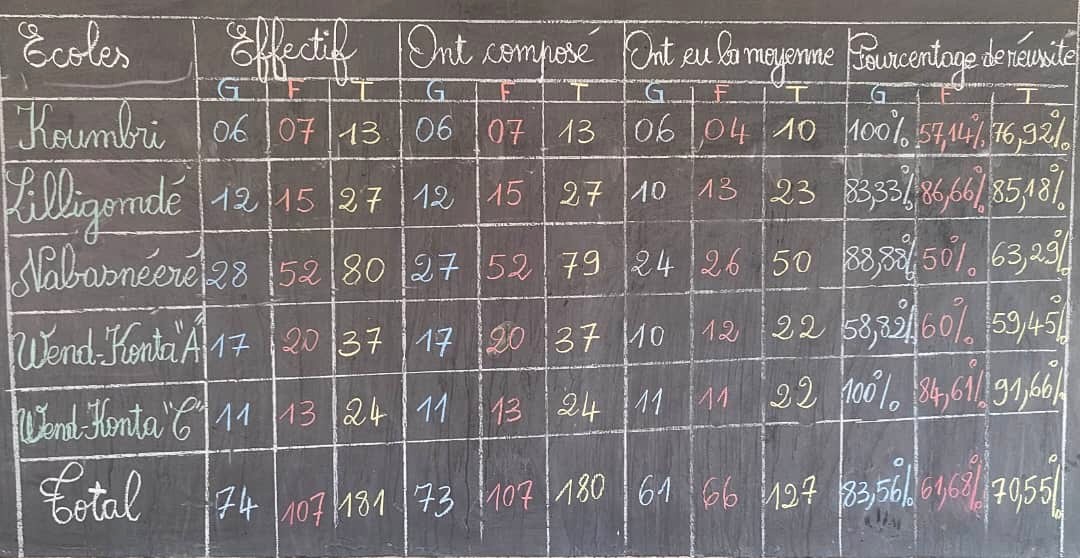 Ecoles Effectif Ont composé Ont eu la moyenne Pourcentage de réussite
G F T G F T G F T G F T
Koumbri 06 07 13 06 07 13 06 04 10 100% 57,14% 76,92%
Lilligomdé 12 15 27 12 15 27 10 13 23 83,33% 86,66% 85,18%
Nabasnéeré 28 52 80 27 52 79 24 26 50 88,88% 50% 63,29%
Wend-Konta "A" 17 20 37 17 20 37 10 12 22 58,82% 60% 59,45%
Wend-Konta "C" 11 13 24 11 13 24 11 11 22 100% 84,61% 91,66%
Total 74 107 181 73 107 180 61 66 127 83,56% 61,68% 70,55%